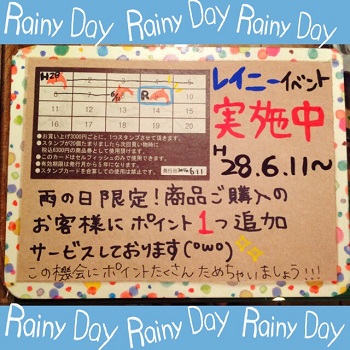 Rainy Day Rainy Day Rainy Day
H28
R
6/11
レイニーイベント
実施中
H28.6.11〜
2 3 4 5
6 7 8 9 10
11 12 13 14 15
16 17 18 19 20
●お買い上げ3000円ごとに、1つスタンプさせて頂きます。
●スタンプが20個たまりましたら次回買い物時に
税込6300円の商品券として使用頂けます。
●このカードはセルフィッシュのみで使用できます。
●有効期限は発行月から5年になります。
●スタンプカードを合算しての使用は禁止です。
発行日
雨の日限定!商品ご購入の
お客様にポイント1つ追加
サービスしております(°ω°)
この機会にポイントたくさんためちゃいましょう!!!
Rainy Day Rainy Day Rainy Day